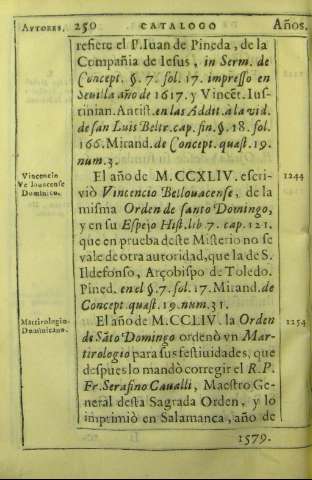 AVTORES. 250 CATALOGO Años.
refiere el P. Iuan de Pineda, de la
Compañia de Iesus, in Serm. de
Concept. §. 7. fol. 17. impresso en
Seuilla año de 1617. y Vincẽt. Ius-
tinian. Antist. en las Addit. à la vid.
de san Luis Beltr. cap. fin. §. 18. fol.
166. Mirand. de Concept. quæst. 19.
num. 3.
Vincencio
Velouacense
Dominico.
El año de M.CCXLIV. escri-
viò Vincencio Bellouacense, de la
misma Orden de santo Domingo,
y en su Espejo Hist. lib 7. cap. 121.
que en prueba deste Misterio no se
vale de otra autoridad, que la de S.
Ildefonso, Arçobispo de Toledo.
Pined. en el §. 7. fol. 17. Mirand. de
Concept. quæst. 19. num. 31.
1244
Martirologio
Dominicano.
El año de M.CCLIV. la Orden
di Sãto Domingo ordenò vn Mar-
tirologio para sus festiuidades, que
despues lo mandò corregir el R.P.
Fr. Serafino Caualli, Maestro Ge-
neral desta Sagrada Orden, y lo
imprimiò en Salamanca, año de
1254
1579.